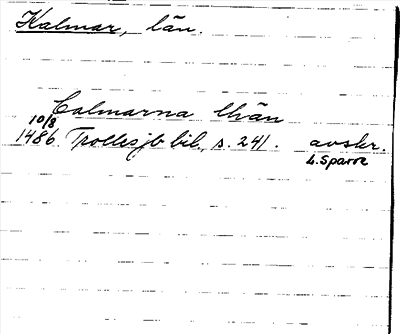 Kalmar, län.
Calmarna lhän
10/8
1486 Trollesjb bil., s. 241. avskr.
L. Sparre